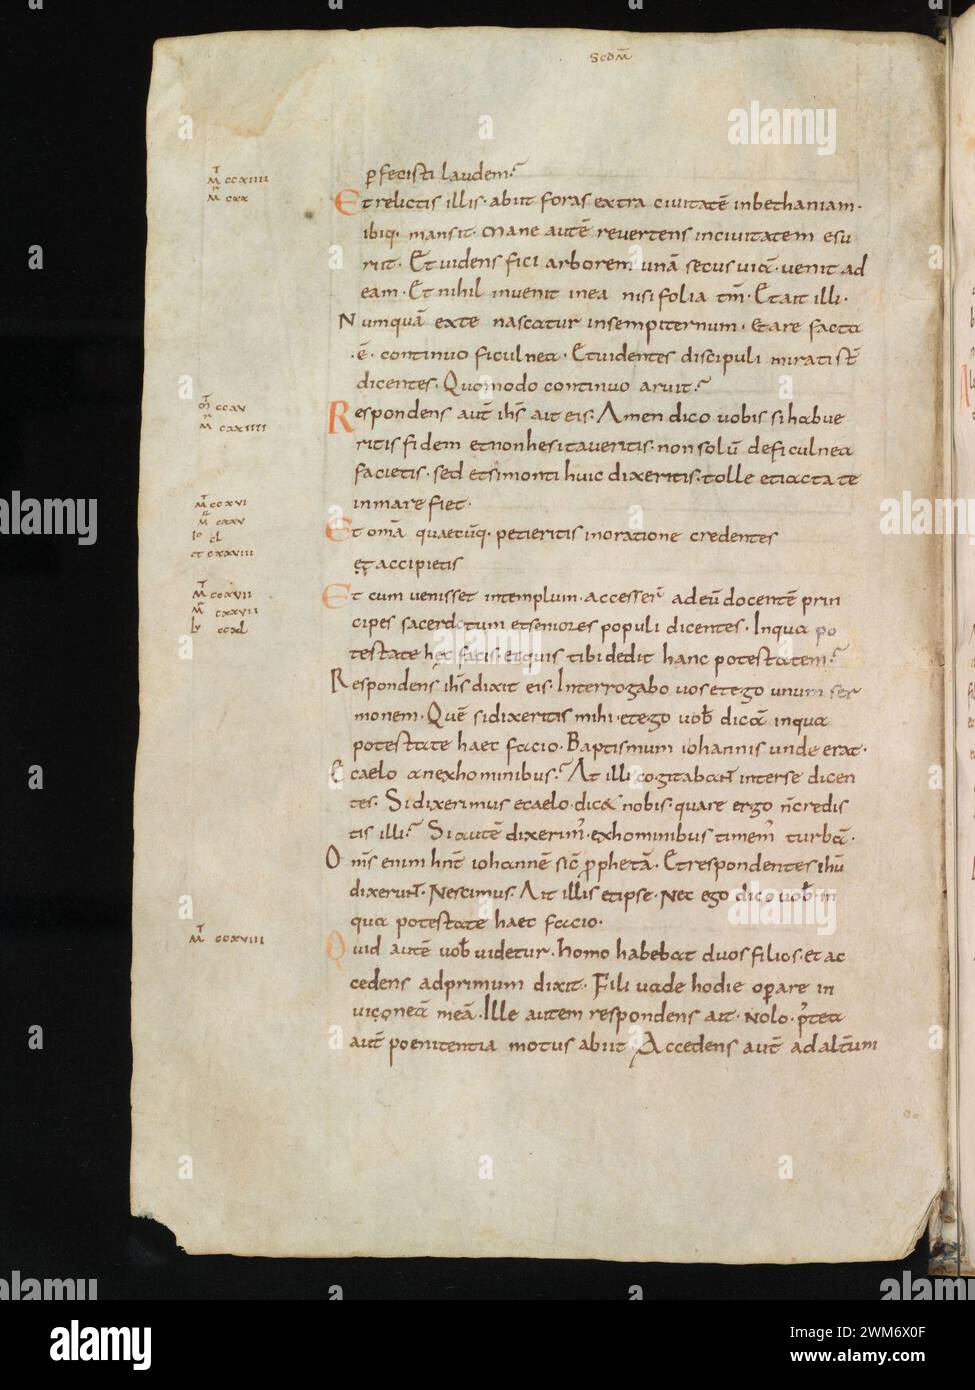 SCDM̄
p̲fecisti laudem?
M̄ ccxiiii
M cxx
Et relictis illis· abiit foras extra ciuitatē inbethaniam·
ibiq· mansit· Mane autē revertens inciuitatem esu
riit· Et uidens fici arborem unā secus uiā· uenit ad
eam· Et nihil invenit inea nisi folia tm̄· Et ait illi·
Numquā exte nascatur insempiternum· etare facta
·ē· continuo ficulnea· Etuidentes discipuli mirati st̄
dicentes· Quomodo continuo aruit?
M̄ ccxv
M cxxiiii
Respondens aut̄ ih̄s ait eis· Amen dico uobis si habue
ritis fidem etnonhesitaveritis· non solū deficulnea
facietis· sed etsimonti huic dixeritis· tolle etiacta te
inmare fiet·
M̄ ccxvi
M cxxv
Io cl
et cxxviii
Et om̄a quaecūq· petieritis inoratione credentes
et accipietis
M̄ ccxvii
M̄ cxxvii
Lu ccxl
Et cum venisset intemplum· accesser̄ adeū docentē prin
cipes sacerdotum etseniores populi dicentes· Inqua po
testate hęc facis· etquis tibi dedit hanc potestatem?
Respondens ih̄s dixit eis· Interrogabo uos etego unum ser
monem· Quē sidixeritis mihi· etego uob̄ dicā inqua
potestate haec facio· Baptismum iohannis unde erat·
E caelo anexhominibus? At illi cogitabant interse dicen
tes· Si dixerimus ecaelo· dicet nobis· quare ergo n̄credis
tis illi? Si autē dixerim̄· exhominibus timem̄ turbā·
Om̄s enim hn̄t iohannē sic̄ p̲phetā· Et respondentes ihū
dixerunt· Nescimus· Ait illis etipse· Nec ego dico uob̄ in
qua potestate haec facio·
M̄ ccxviii
Quid autē uob̄ uidetur· homo habebat duos filios· et ac
cedens adprimum dixit· Fili uade hodie operare in
vineā meā· Ille autem respondens ait· Nolo· p̄tea
aut̄ poenitentia motus abiit· Accedens aut̄ ad alt̄um
alamy
Image ID: 2WM6X0F
www.alamy.com